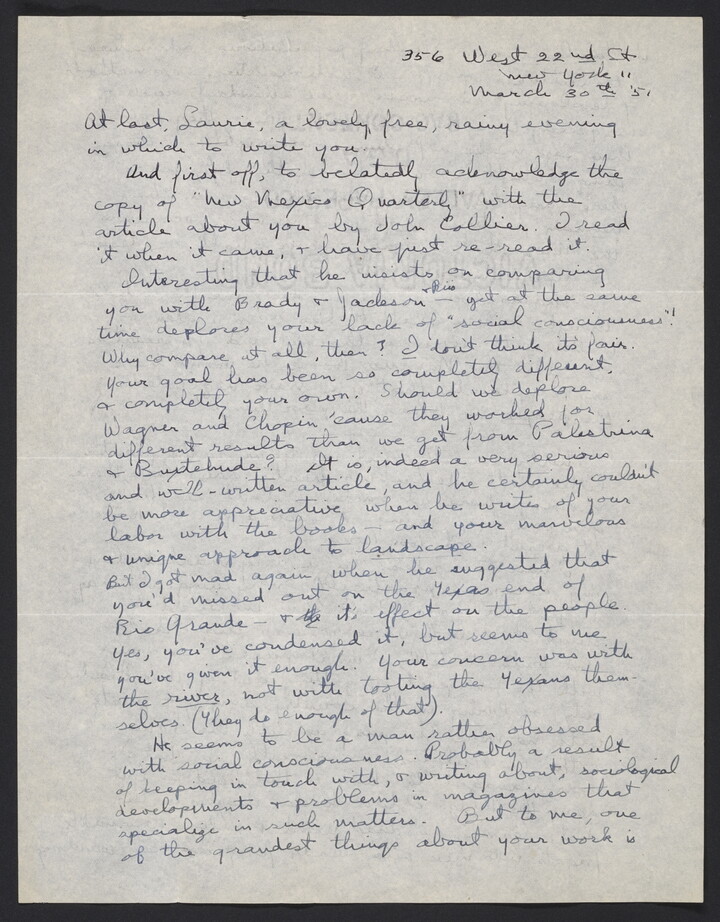 356 West 22nd St
New York 11
March 30th '51
At last, Laurie, a lovely, free, rainy evening
in which to write you.
And first off, to belatedly acknowledge the
copy of "New Mexico Quarterly" with the
article about you by John Collier. I read
it when it came, & have just re-read it.
Interesting that he insists on comparing
you with Brady & Jackson — yet at the same
time deplores your lack of "social consciousness"!
Why compare at all, then? I don't think it's fair.
Your goal has been so completely different,
& completely your own. Should we deplore
Wagner and Chopin 'cause they worked for
different results than we get from Palestrina
& Buxtehude? It is, indeed a very serious
and well-written article, and he certainly couldn't
be more appreciative when he writes of your
labor with the books — and your marvelous
& unique approach to landscape.
But I got mad again when he suggested that
you'd missed out on the Texas end of
Rio Grande — & it's effect on the people.
Yes, you've condensed it, but seems to me
you've given it enough. Your concern was with
the river, not with tooting the Texans them-
selves. (They do enough of that).
He seems to be a man rather obsessed
with social consciousness. Probably a result
of keeping in touch with, & writing about, sociological
developments & problems in magazines that
specialize in such matters. But to me, one
of the grandest things about your work is